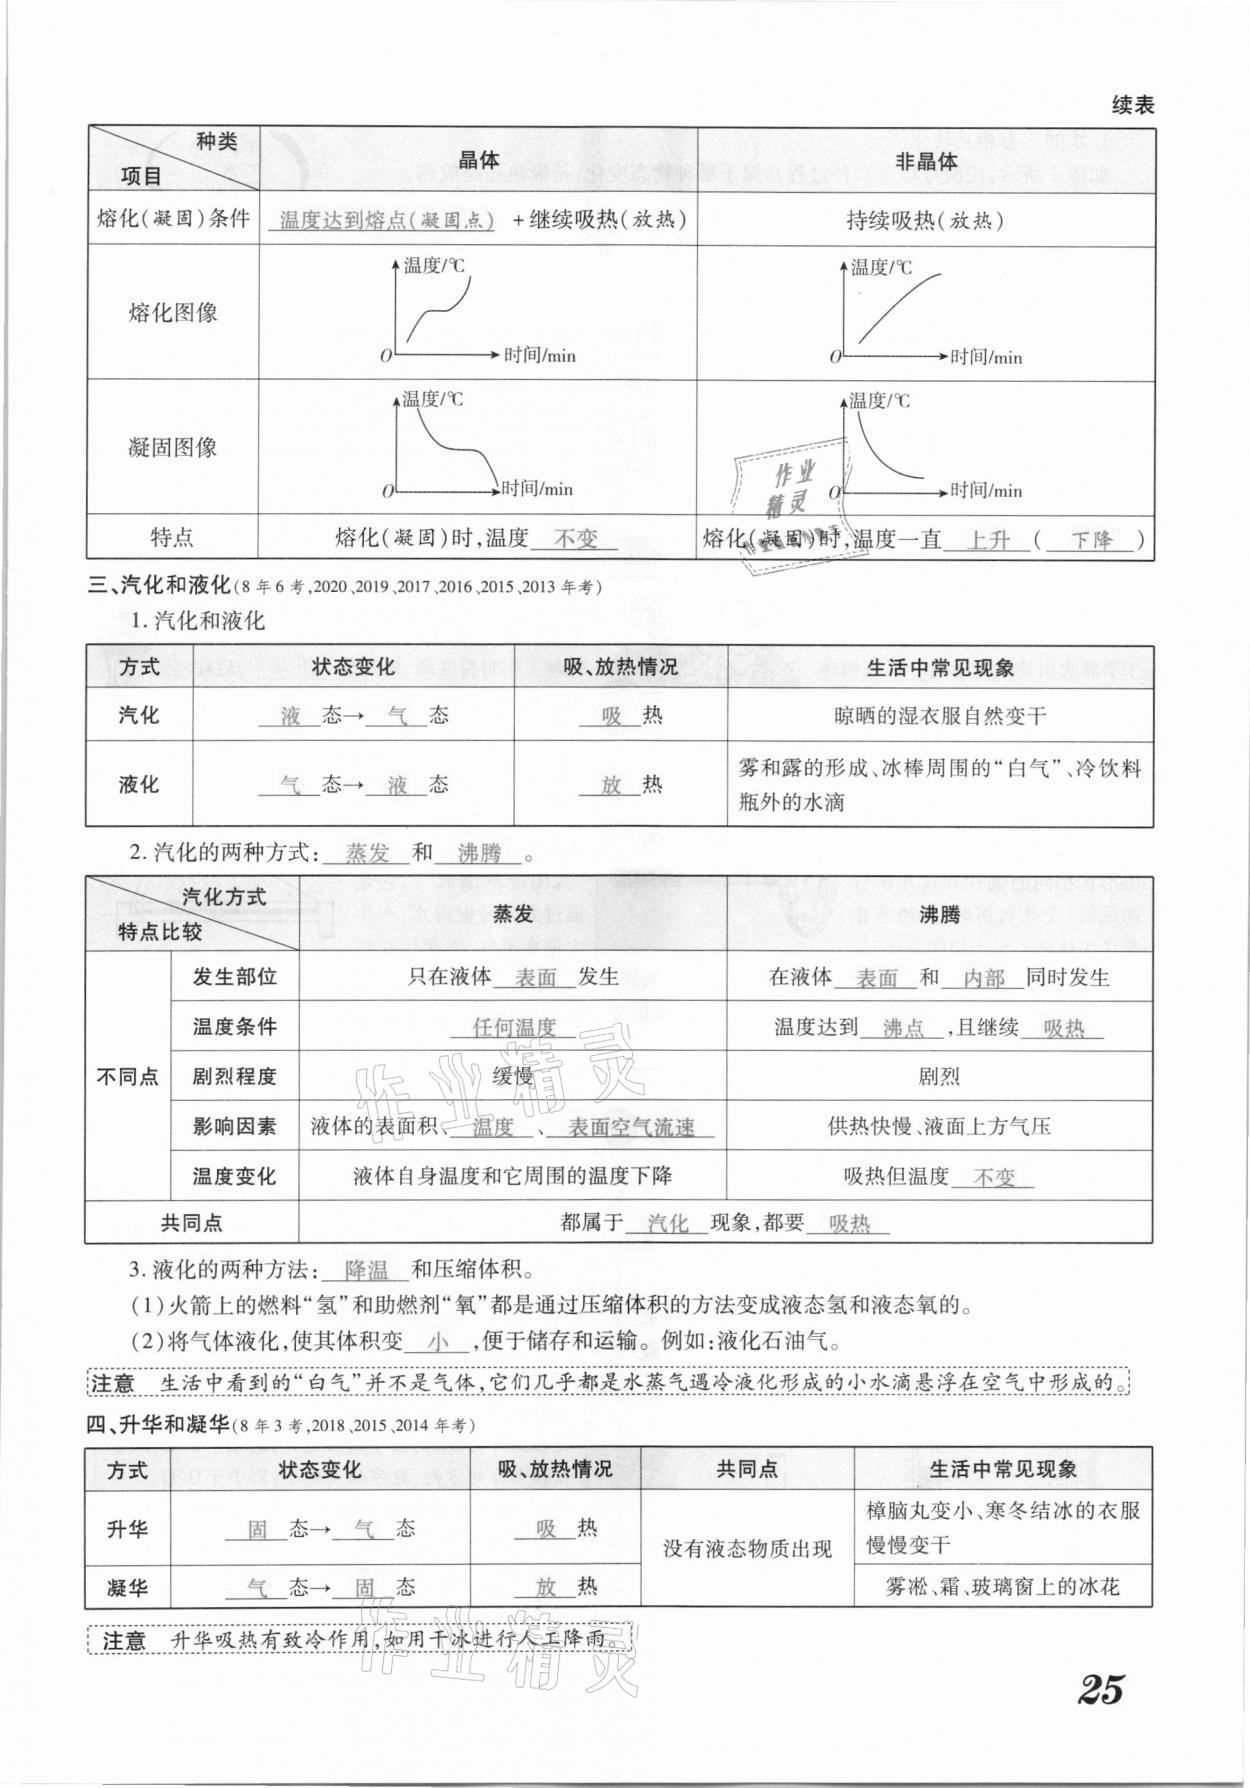 续表
种类
项目
晶体
非晶体
熔化(凝固)条件
温度达到熔点(凝固点) +继续吸热(放热)
持续吸热(放热)
熔化图像
温度/℃
O
时间/min
温度/℃
O
时间/min
凝固图像
温度/℃
O
时间/min
温度/℃
O
时间/min
特点
熔化(凝固)时,温度 不变
熔化(凝固)时,温度一直 上升 ( 下降 )
三、汽化和液化(8年6考,2020、2019、2017、2016、2015、2013年考)
1. 汽化和液化
方式
状态变化
吸、放热情况
生活中常见现象
汽化
液 态→ 气 态
吸 热
晾晒的湿衣服自然变干
液化
气 态→ 液 态
放 热
雾和露的形成、冰棒周围的“白气”、冷饮料
瓶外的水滴
2. 汽化的两种方式: 蒸发 和 沸腾 。
汽化方式
特点比较
蒸发
沸腾
不同点
发生部位
只在液体 表面 发生
在液体 表面 和 内部 同时发生
温度条件
任何温度
温度达到 沸点 ,且继续 吸热
剧烈程度
缓慢
剧烈
影响因素
液体的表面积、 温度 、 表面空气流速
供热快慢、液面上方气压
温度变化
液体自身温度和它周围的温度下降
吸热但温度 不变
共同点
都属于 汽化 现象,都要 吸热
3. 液化的两种方法: 降温 和压缩体积。
(1)火箭上的燃料“氢”和助燃剂“氧”都是通过压缩体积的方法变成液态氢和液态氧的。
(2)将气体液化,使其体积变 小 ,便于储存和运输。例如:液化石油气。
注意 生活中看到的“白气”并不是气体,它们几乎都是水蒸气遇冷液化形成的小水滴悬浮在空气中形成的。
四、升华和凝华(8年3考,2018、2015、2014年考)
方式
状态变化
吸、放热情况
共同点
生活中常见现象
升华
固 态→ 气 态
吸 热
没有液态物质出现
樟脑丸变小、寒冬结冰的衣服
慢慢变干
凝华
气 态→ 固 态
放 热
雾凇、霜、玻璃窗上的冰花
注意 升华吸热有致冷作用,如用干冰进行人工降雨。
25
作业
精灵
作业精灵
作业精灵